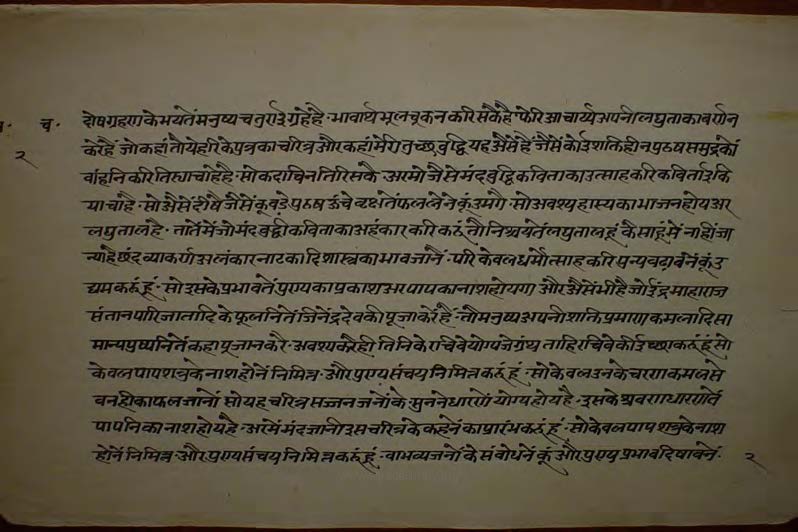 च॰ दोषग्रहणकेभयतेंमनुष्यचतुराईग्रहेहै॰भावार्थभूलचूकनकरिसकैहै॰फेरिआचार्य्यअपनीलघुताकावर्णन
२ करेहैं जोकहांतौयेहरिकेपुत्रकाचरित्र औरकहांमेरीतुच्छबुद्धि यहअैसेंहैं जैसेंकोईशक्तिहीनपुरुषसमुद्रकों
बांहनिकरितिस्याचाहैहै॰सोकदाचिनतिरिसकै॰अरमोजैसेमंदबुद्धिकविताकाउत्साहकरिकविताईकि
याचाहै॰सोअैसेंदीषैजैसेंकूबडेपुरुषऊंचेवृक्षतेंफललेनेंकूंउमगै॰सोअवश्यहास्यकाभाजनहोयअर
लघुतालहै॰तातैंमेंजोमंदबुद्धीकविताकाअहंकारकरिकरूंतौनिश्चयतेंलघुतालहूंकैसाहूंमेंनाहींजा
न्याहैछंदव्याकर्णअलंकारनाटकादिशास्त्रकाभावजानें॰परिकेवलधर्मोत्साहकरिपुन्यवढावनेंकूंउ
द्यमकरूंहूं॰सोउसकेप्रभावतेंपुण्यकाप्रकाशअरपापकानाशहोयगा औरअैसेंभीहैजोइंद्रमाहाराज
संतानपारिजातादिकेफूलनितेंजिनेंद्रदेवकीपूजाकरेंहैं॰तौमनुष्यअपनीशक्तिप्रमाणकमलादिसा
मान्यपुष्पनितेंकहापूजानकरै॰अवश्यकरैही तिनिकेरचिवेयोग्यजेग्रंथताहिरचिवेकीइच्छाकरूंहूंसो
केवलपापशत्रुकेनाशहोनेंनिमित्त॰औरपुण्यसंचयनिमित्तकरूंहूं॰सोकेवलउनकेचरणकमलसे
वनहीकाफलजानों सोयहचरित्रसज्जनजनोंकेसुननेंधारणेंयोग्यहोयहै॰उसकेश्रवणधारणतें
पापनिकानाशहोयहै॰अरमेंमंदज्ञानीउसचरित्रकेकहनेंकाप्रारंभकरूंहूं॰सोकेवलपापशत्रुकेनाश
होनेंनिमित्त॰औरपुण्यसंचयनिमित्तकरूंहूं॰वाभव्यजनोंकेसंबोधनेंकूंऔरपुण्यप्रभावदिषावनें॰ २